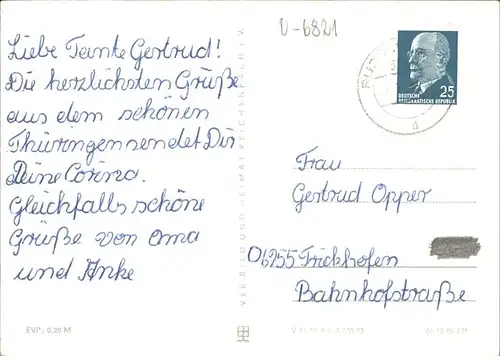 U-6821
Liebe Tante Gertrud!
Die herzlichsten Grüße
aus dem schönen
Thüringen sendet Dir
Deine Corina.
Gleichfalls schöne
Grüße von Oma
und Anke
25
DEUTSCHE
DEMOKRATISCHE REPUBLIK
d
Frau
Gertrud Opper
06255 Frickhofen
Bahnhofstraße
EVP: 0,20 M